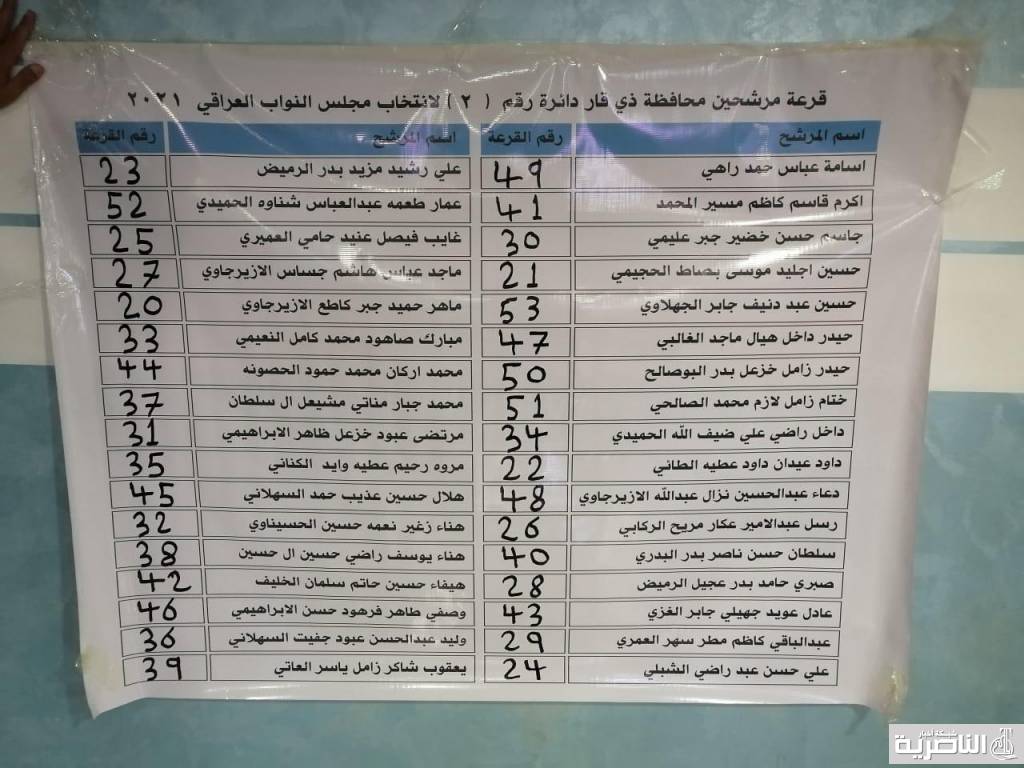 قرعة مرشحين محافظة ذي قار دائرة رقم ( ٢ ) لانتخاب مجلس النواب العراقي ٢٠٢١
اسم المرشح رقم القرعة اسم المرشح رقم القرعة
اسامة عباس حمد راهي 49 علي رشيد مزيد بدر الرميض 23
اكرم قاسم كاظم مسير المحمد 41 عمار طعمه عبدالعباس شناوه الحميدي 52
جاسم حسن خضير جبر عليمي 30 غايب فيصل عنيد حامي العميري 25
حسين اجليد موسى بصاط الحجيمي 21 ماجد عباس هاشم جساس الازيرجاوي 27
حسين عبد دنيف جابر الجهلاوي 53 ماهر حميد جبر كاطع الازيرجاوي 20
حيدر داخل هيال ماجد الغالبي 47 مبارك صاهود محمد كامل النعيمي 33
حيدر زامل خزعل بدر البوصالح 50 محمد اركان محمد حمود الحصونه 44
ختام زامل لازم محمد الصالحي 51 محمد جبار مناتي مشيعل ال سلطان 37
داخل راضي علي ضيف الله الحميدي 34 مرتضى عبود خزعل ظاهر الابراهيمي 31
داود عيدان داود عطيه الطائي 22 مروه رحيم عطيه وايد الكناني 35
دعاء عبدالحسين نزال عبدالله الازيرجاوي 48 هلال حسين عذيب حمد السهلاني 45
رسل عبدالامير عكار مريح الركابي 26 هناء زغير نعمه حسين الحسيناوي 32
سلطان حسن ناصر بدر البدري 40 هناء يوسف راضي حسين ال حسين 38
صبري حامد بدر عجيل الرميض 28 هيفاء حسين حاتم سلمان الخليف 42
عادل عويد جهيلي جابر الغزي 43 وصفي طاهر فرهود حسن الابراهيمي 46
عبدالباقي كاظم مطر سهر العمري 29 وليد عبدالحسن عبود جفيت السهلاني 36
علي حسن عبد راضي الشبلي 24 يعقوب شاكر زامل ياسر العاتي 39
شبكة اخبار
الناصرية